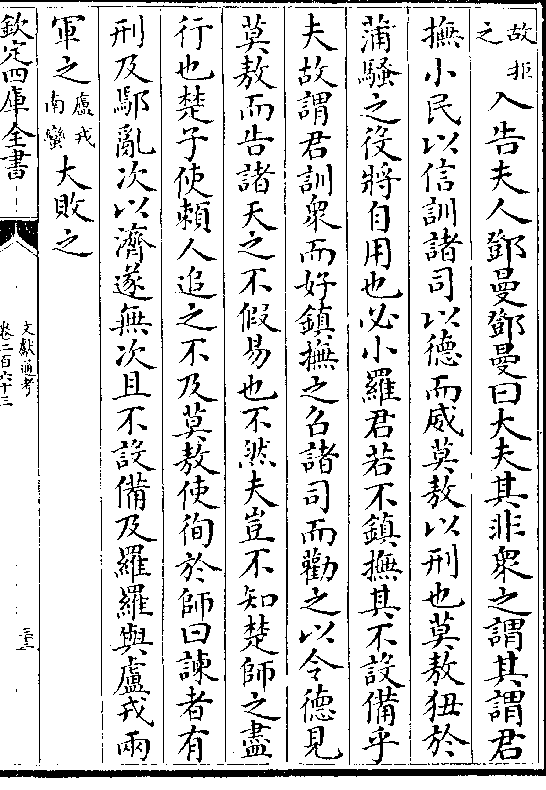 故拒
之
入告夫人鄧曼鄧曼曰大夫其非衆之謂其謂君
撫小民以信訓諸司以德而威莫敖以刑也莫敖狃於
蒲騷之役將自用也必小羅君若不鎮撫其不設備乎
夫故謂君訓衆而好鎮撫之召諸司而勸之以令德見
莫敖而告諸天之不假易也不然夫豈不知楚師之盡
行也楚子使頼人追之不及莫敖使徇於師曰諫者有
刑及鄢亂次以濟遂無次且不設備及羅羅與盧戎兩
軍之
盧戎
南蠻
大敗之
欽定四庫全書
文獻通考
卷二百六十三
三三